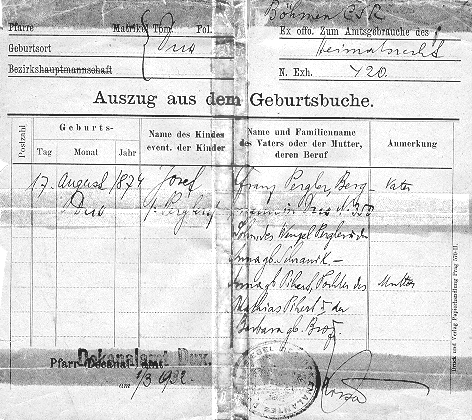 Böhmen ČSR
Pfarre Matrike Tom. Pol.
Dux
Ex offo. Zum Amtsgebrauche des
Geburtsort
Heimatsrecht
Bezirkshauptmannschaft
N. Exh. 420.
Auszug aus dem Geburtsbuche.
Postzahl
Geburts-
Tag Monat Jahr
Name des Kindes
event. der Kinder
Name und Familienname
des Vaters oder der Mutter,
deren Beruf
Anmerkung
17. August 1874 Josef Franz Pergler, Berg- Vater
Dux Pergler in Dux N.
Sohn des Wenzel Pergler u. der
Anna gb.
Anna gb. Pihert, Tochter des Mutter
Mathias Pihert u. der
Barbara gb.
Pfarr-Decanal-amt
Dekanalamt Dux.
am 1/3 1922
Druck und Verlag Papierhandlung Prag